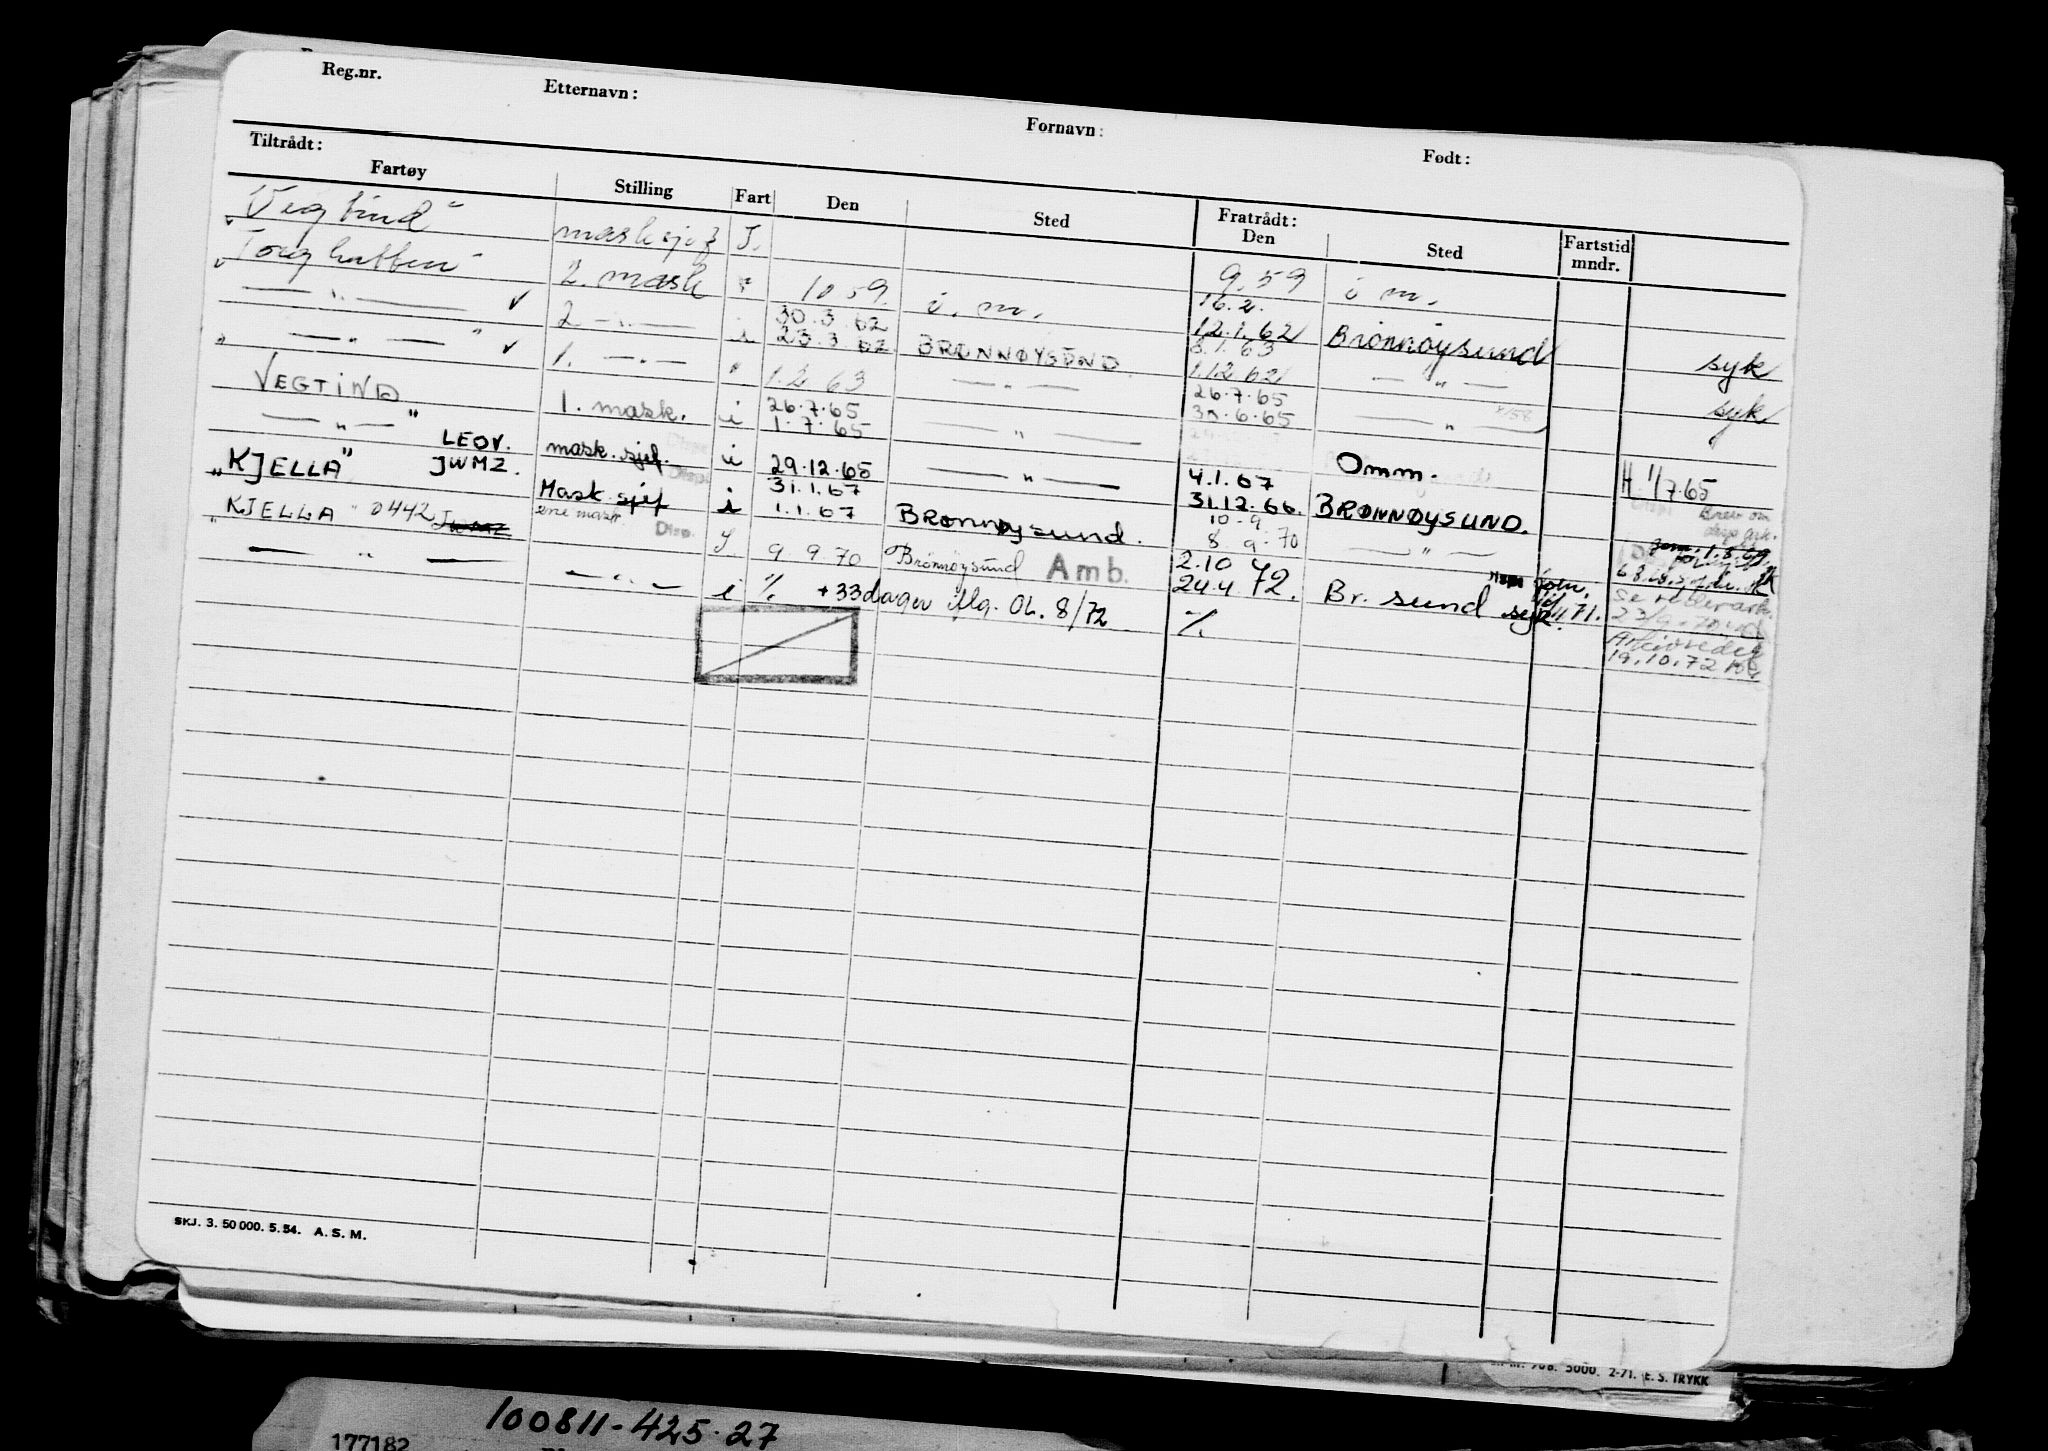 Reg.nr. Etternavn: Fornavn: Født:
Tiltrådt: Fratrådt:
Fartøy Stilling Fart Den Sted Den Sted Fartstid mndr.
"Vegtind" masksjef I. 9.59 i m.
"Torghatten" 2. mask 10 59. i. m. 16.2.
— " — ✓ 2 — " — 30.3.62 12.1.62 Brønnøysund syk
23.3.62 BRØNNØYSUND 8.1.63
— " — " ✓ 1. — " — " 1.2 63 — " — 1.12 62 — " — syk
"VEGTIND" 1. mask. i 26.7.65 26.7.65
— " — 1.7.65 — " — 30.6.65 — " —
LEOV. mask.sjef. i 29.12.65 — " — Omm. H. 1/7.65
"KJELLA" JWMZ. 31.1.67 4.1.67
Mask sjef i 1.1.67 Brønnøysund. 31.12.66. BRØNNØYSUND. Brev om
"KJELLA" 0442 JWMZ ene mask. Disp. 10-9
9 9.70 Brønnøysund Amb. 8 9-70 — " —
— " — — " — i % +33dager iflg. OL. 8/72 2.10 72.
24.4 Br. sund syk 71.
% 23/9-70
19.10.72
SKJ. 3. 50 000. 5. 54. A. S. M.
708. 5000. 2-71. E. S. TRYKK
100811-425.27
177182